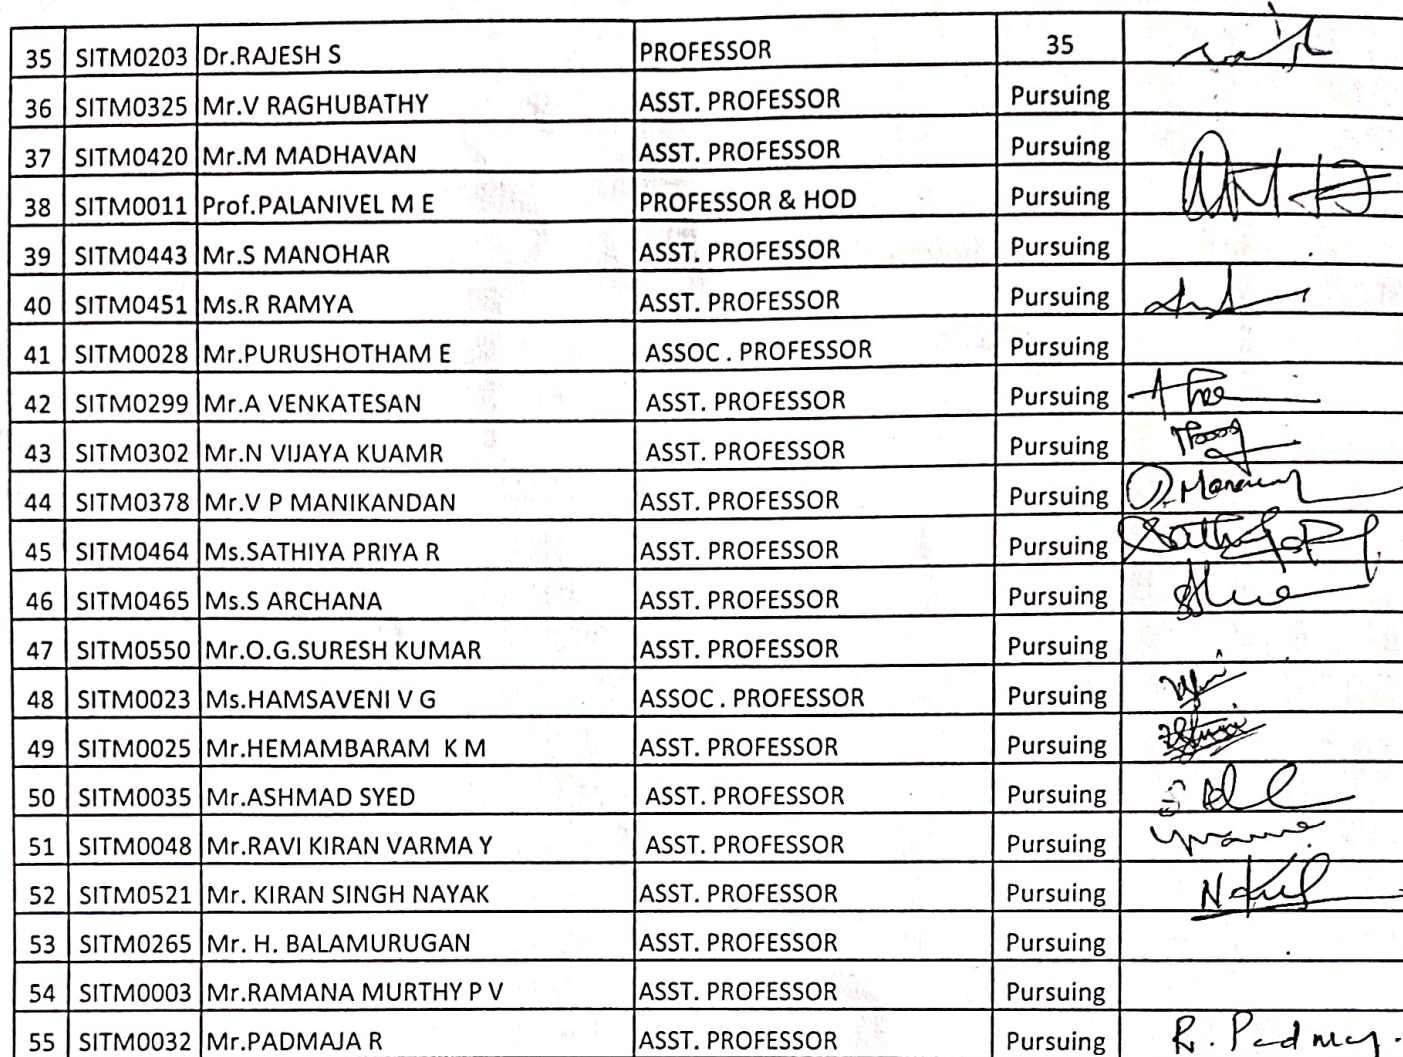 35 SITM0203 Dr.RAJESH S PROFESSOR 35
36 SITM0325 Mr.V RAGHUBATHY ASST. PROFESSOR Pursuing
37 SITM0420 Mr.M MADHAVAN ASST. PROFESSOR Pursuing
38 SITM0011 Prof.PALANIVEL M E PROFESSOR & HOD Pursuing
39 SITM0443 Mr.S MANOHAR ASST. PROFESSOR Pursuing
40 SITM0451 Ms.R RAMYA ASST. PROFESSOR Pursuing
41 SITM0028 Mr.PURUSHOTHAM E ASSOC . PROFESSOR Pursuing
42 SITM0299 Mr.A VENKATESAN ASST. PROFESSOR Pursuing
43 SITM0302 Mr.N VIJAYA KUAMR ASST. PROFESSOR Pursuing
44 SITM0378 Mr.V P MANIKANDAN ASST. PROFESSOR Pursuing
45 SITM0464 Ms.SATHIYA PRIYA R ASST. PROFESSOR Pursuing
46 SITM0465 Ms.S ARCHANA ASST. PROFESSOR Pursuing
47 SITM0550 Mr.O.G.SURESH KUMAR ASST. PROFESSOR Pursuing
48 SITM0023 Ms.HAMSAVENI V G ASSOC . PROFESSOR Pursuing
49 SITM0025 Mr.HEMAMBARAM K M ASST. PROFESSOR Pursuing
50 SITM0035 Mr.ASHMAD SYED ASST. PROFESSOR Pursuing
51 SITM0048 Mr.RAVI KIRAN VARMA Y ASST. PROFESSOR Pursuing
52 SITM0521 Mr. KIRAN SINGH NAYAK ASST. PROFESSOR Pursuing
53 SITM0265 Mr. H. BALAMURUGAN ASST. PROFESSOR Pursuing
54 SITM0003 Mr.RAMANA MURTHY P V ASST. PROFESSOR Pursuing
55 SITM0032 Mr.PADMAJA R ASST. PROFESSOR Pursuing